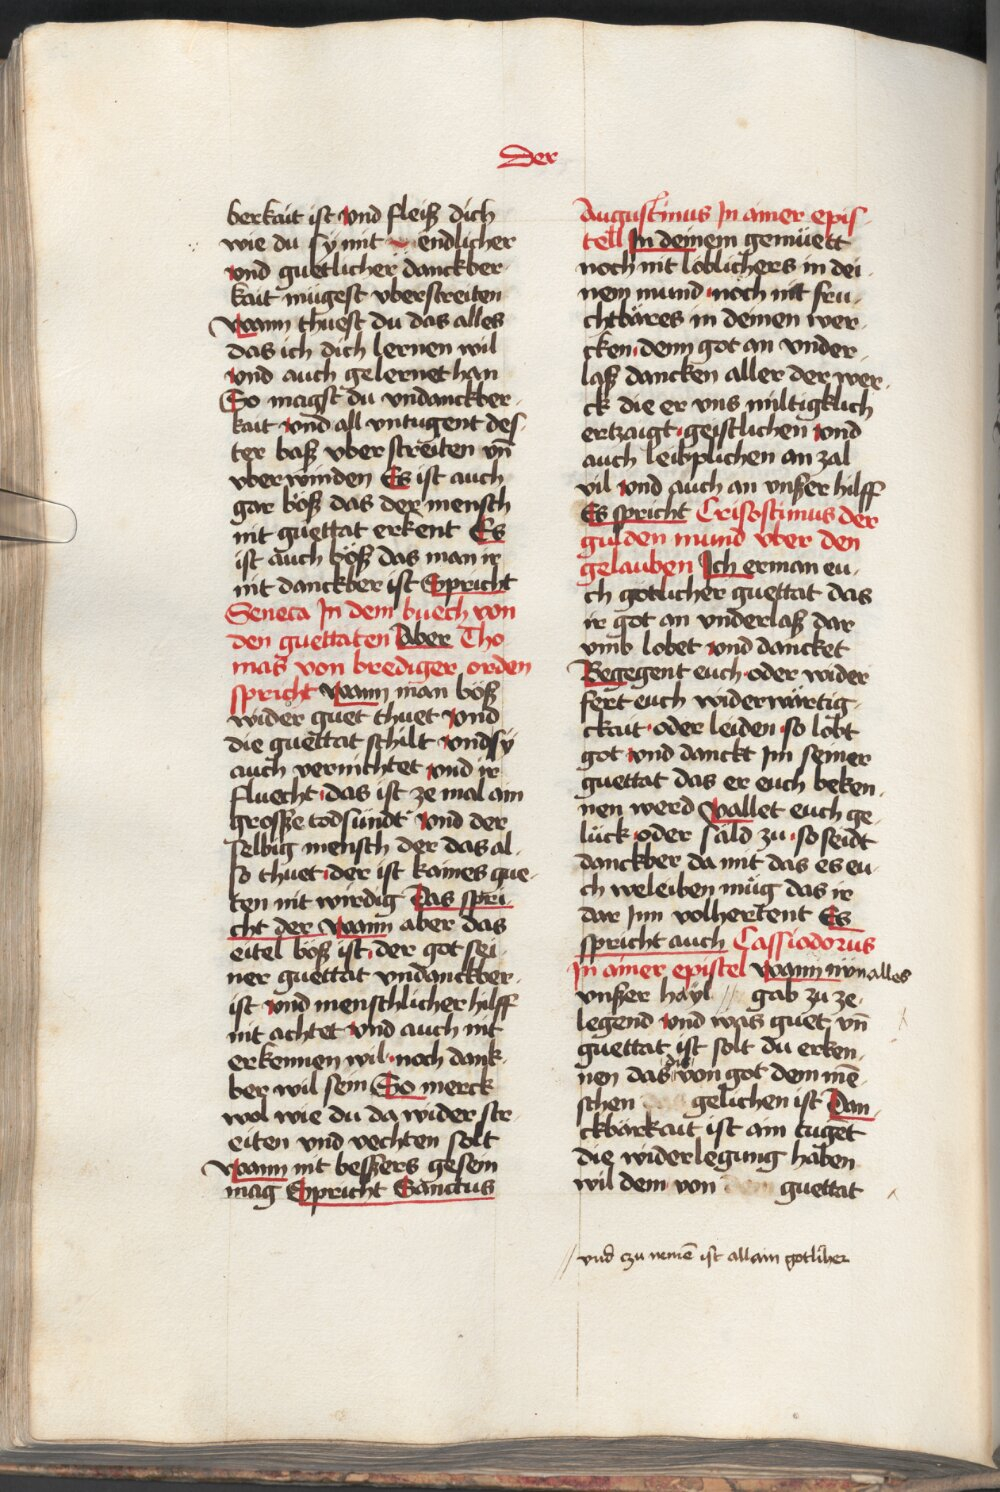 Der
berkait ist vnd fleiß dich
wie du sy mit endlicher
vnd guetlicher danckber
kait mügest vberstreiten
Wann thuest du das alles
das ich dich lernen wil
vnd auch gelernet han
So magst du vndanckber
kait vnd all vntugent des
ter baß vber streiten vñ
vberwinden Es ist auch
gar böß das der mensch
nit guettat erkent Es
ist auch böß das man ir
nit danckber ist Spricht
Seneca In dem buech von
den guettaten Aber Tho
mas von brediger orden
spricht Wann man böß
wider guet thuet vnd
die guettat schilt vnd sy
auch vernichtet vnd ir
fluecht das ist ze mal ain
grosse todsündt vnd der
selbig mensch der das al
so thuet der ist kaines gue
ten nit wirdig Das spri
cht der Wann aber das
eitel böß ist der got sei
ner guettat vndanckber
ist vnd menschlicher hilff
nit achtet vnd auch nit
erkennen wil noch dank
ber wil sein So merck
wol wie du da wider str
eiten vnd vechten solt
Wann nit bessers gesein
mag Spricht Sanctus
Augustinus In ainer epis
tell In deinem gemüett
noch nit löblichers in dei
nem mund noch nit fru
chtbäres in deinen wer
cken denn got an vnder
laß dancken aller der wer
ck die er vns miltigklich
ertzaigt geistlichen vnd
auch leiplichen an zal
vil vnd auch an vnßer hilff
Es spricht Crisostimus der
gulden mund vber den
gelauben Ich erman eu
ch götlicher guettat das
ir got an vnderlaß dar
vmb lobet vnd dancket
Begegent euch oder wider
fert euch widerwärtig
ckait oder leiden so lobt
got vnd danckt Im seiner
guettat das er euch beken
nen werd Vallet euch ge
lück oder säld zu so seidt
danckber da mit das es eu
ch weleiben müg das ir
dar Inn volhertent Es
spricht auch Cassiodorus
In ainer epistel Wann nün alles
vnßer hayl // gab zu ze
legend vnd was guet vñ
guettat ist solt du erken
nen das von got dem mē
schen gelichen ist Dan
ckbärkait ist ain tuget
die widerlegung haben
wil dem von guettat
// vnd czu nemē ist allain gotlicher